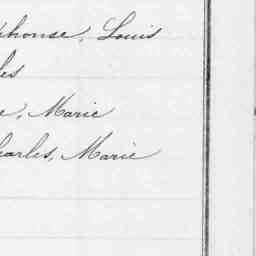 phonse, Louis
les
e, Marie
harles, Marie